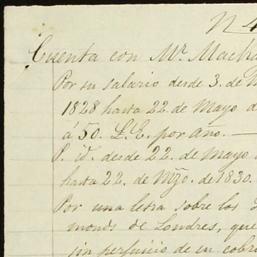 N 4
Cuenta con Mr. Macha
Por su salario desde 3. de
1828 hasta 22 de Mayo d
á 50. L.E. por año.—
P. id. desde 22. de mayo
hasta 22. de Mzo. de 1830.
Por una letra sobre los
monds de Londres, que
sin perjuicio de su cobro